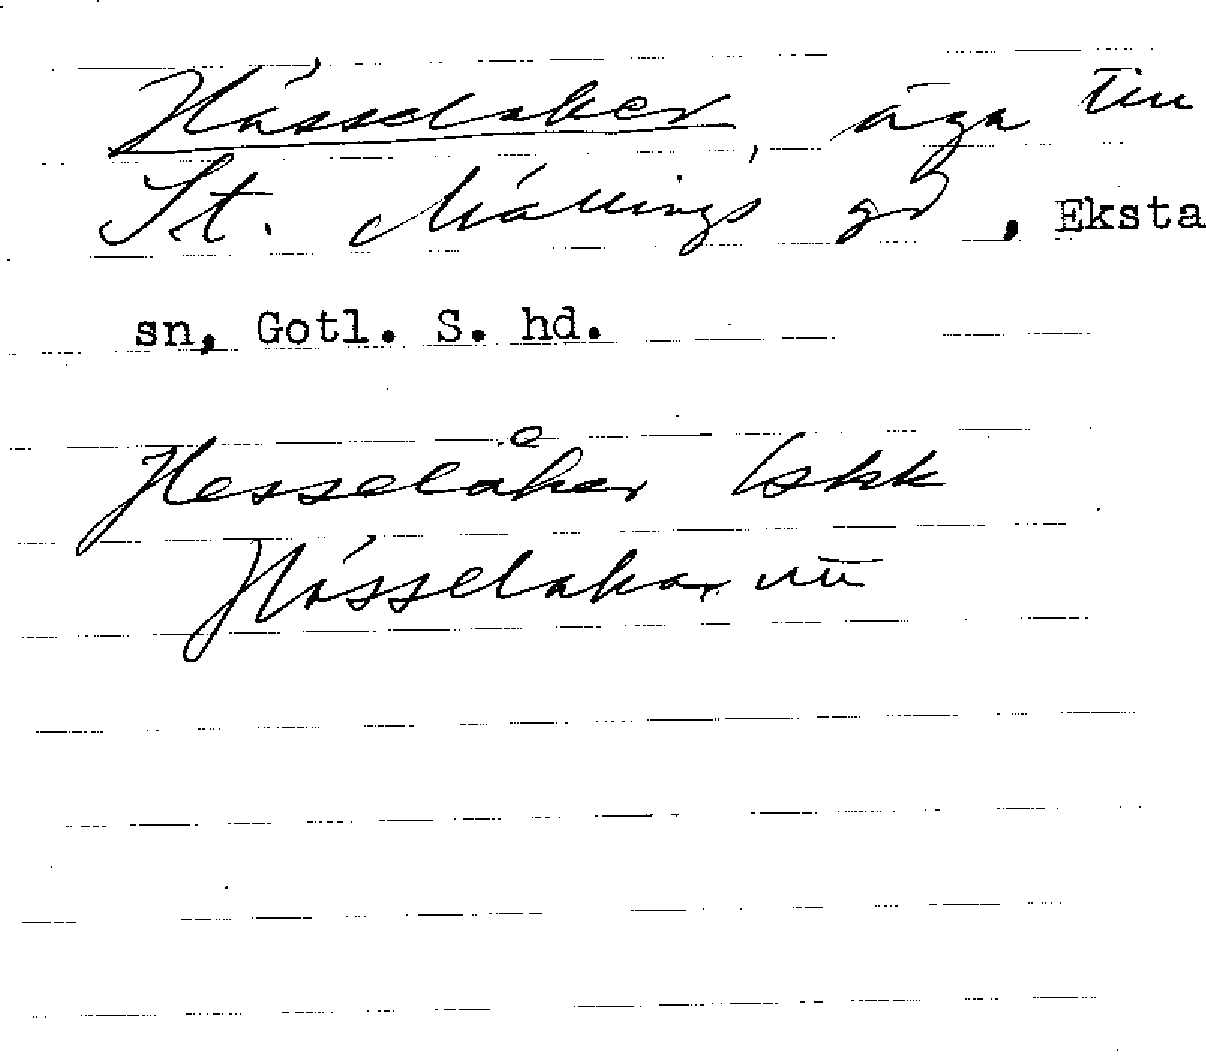 Hässelaker, äga till
St. Mällings gd, Eksta
sn, Gotl. S. hd.
Hesselåker Iskk
Hässelakar